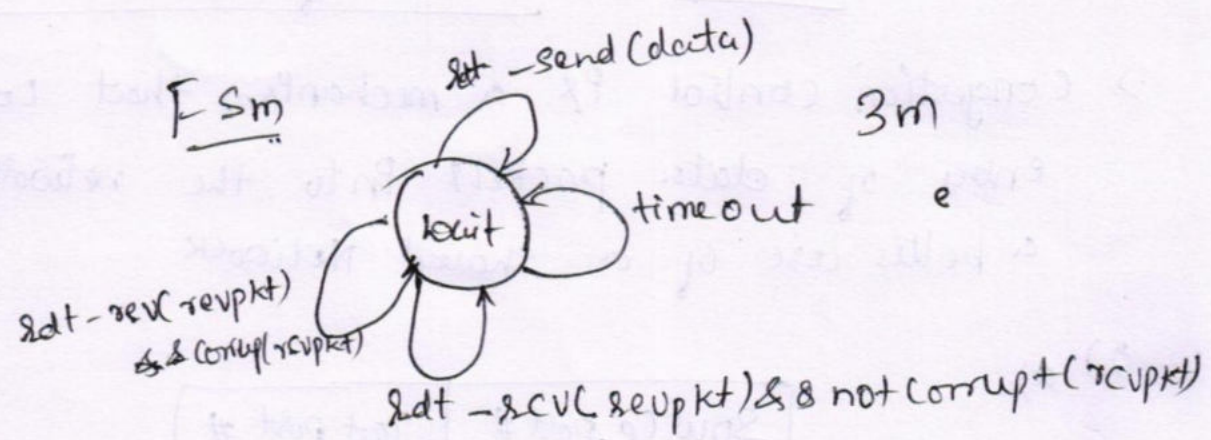 rdt - send (data)
FSm
3m
wait
timeout
e
rdt - rcv( rcvpkt)
&& Corrupt(rcvpkt)
rdt - rcv( rcvpkt) && not Corrupt (rcvpkt)